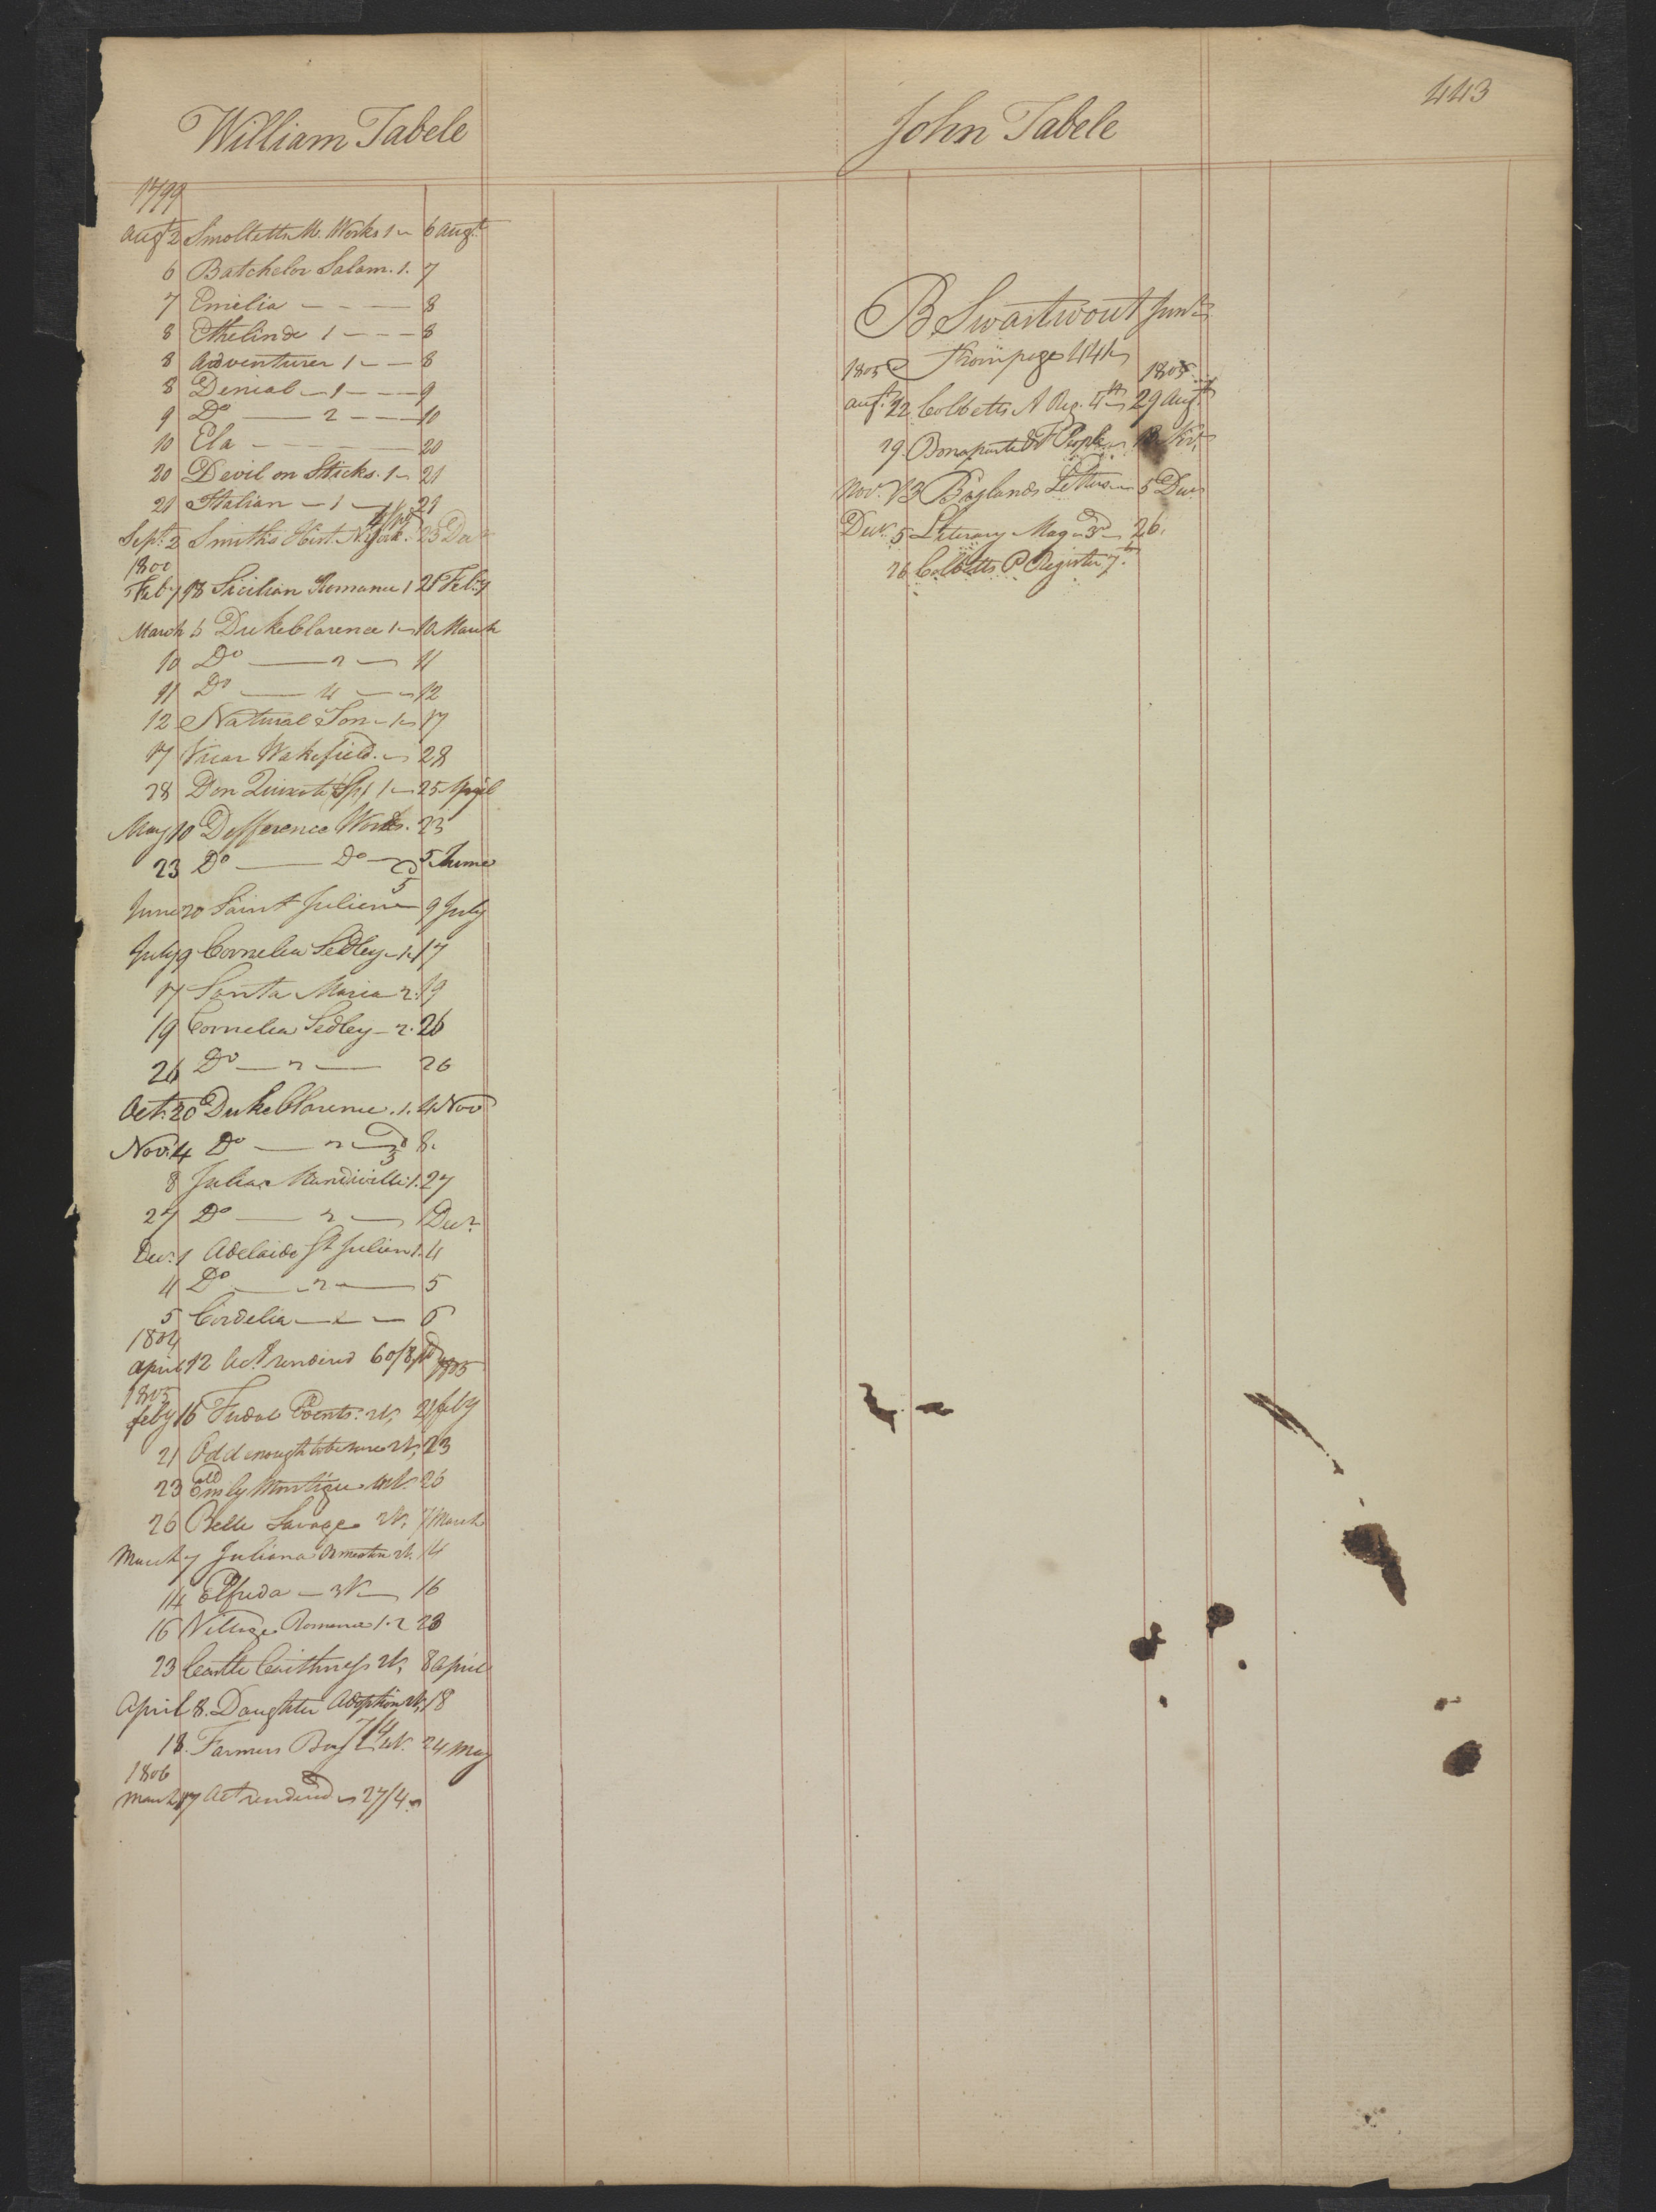 443
William Tabele
1799
Augt 2 Smolletts M. Works 1 6 Augt
6 Batchelor Salam. 1. 7
7 Emelia 8
8 Ethelinde 1 8
8 Adventurer 1 8
8 Denial 1 9
9 Do 2 10
10 Ela 20
20 Devil on Sticks. 1 21
21 Italian 1 29
Sept. 2 Smiths Hist. N. York. 23 Decr
1800
Feby 18 Sicilian Romance 1 21 Feby
March 5 Duke Clarence 1 10 March
10 Do 2 11
11 Do 4 12
12 Natural Son 1 17
17 Vicar Wakefield 28
28 Don Quixote 1 25 April
May 10 Defference Works. 23
23 Do Do 5 June
June 20 Saint Julien 9 July
July 9 Cornelia Sedley 1. 17
17 Santa Maria 2. 19
19 Cornelia Sedley 2. 26
26 Do 2 26
Oct. 20 Duke Clarence. 1. 4 Nov
Nov. 4 Do 2 3 8.
8 Julia Mandiville 1. 27
27 Do 2 1 Decr
Decr. 1 Adelaide St Julien 1. 4
4 Do 2 5
5 Cordelia 6
1804
April 12 Act. rendered 60/8 pd 1805
1805
Feby 16 Fudal Events. 2V. 21 feby
21 Odd enough to be sure 2V. 23
23 Emily Montigue 26
26 Belle Savage 2V. 7 March
March 7 Juliana Ormeston 2V. 14
14 Elfrida 3V 16
16 Village Romance 1. 2 23
23 Castle Caithness 2V. 8 April
April 8. Daughter Adoption 2V. 18
18. Farmers Boy 24 May
1806
March 17 Act rendered 27/4
John Tabele
B Swartwout Junr
1805 From page 441 1805
Augt. 22 Colbetts A Reg. 4th 29 Augt
29 Bonaparte & F People 13 Nov.
Nov. 13 Raglands Letters 5 Decr
Decr. 5 Literary Mag 3d 26.
26 Colbetts P Register 7th